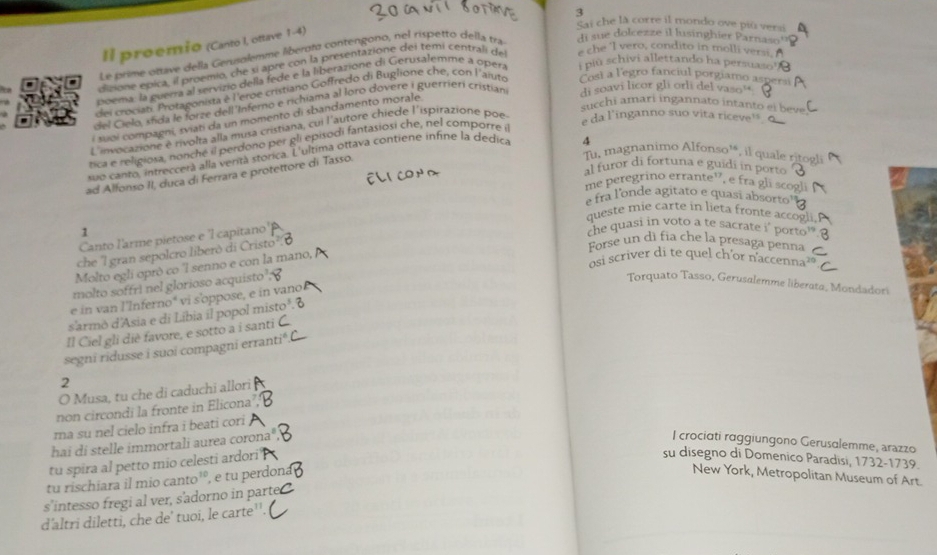 Il proemio (Canto I, ottave 1-4)
Le prime ottave della Gerusalemme liberata contengono, nel rispetto della tra-
dizione epica, il proemio, che si apre con la presentazione dei temi centrali del
poema: la guerra al servizio della fede e la liberazione di Gerusalemme a opera
dei crociati. Protagonista è l'eroe cristiano Goffredo di Buglione che, con l'aiuto
del Cielo, sfida le forze dell'Inferno e richiama al loro dovere i guerrieri cristiani
i suoi compagni, sviati da un momento di sbandamento morale.
L'invocazione è rivolta alla musa cristiana, cui l'autore chiede l'ispirazione poe-
tica e religiosa, nonché il perdono per gli episodi fantasiosi che, nel comporre il
suo canto, intreccerà alla verità storica. L'ultima ottava contiene infine la dedica
ad Alfonso II, duca di Ferrara e protettore di Tasso.
ELICONA
1
Canto l'arme pietose e 'l capitano¹ A
che 'l gran sepolcro liberò di Cristo². B
Molto egli oprò co 'l senno e con la mano, A
molto soffrì nel glorioso acquisto³; B
e in van l'Inferno⁴ vi s'oppose, e in vano A
s'armò d'Asia e di Libia il popol misto⁵. B
Il Ciel gli diè favore, e sotto a i santi C
segni ridusse i suoi compagni erranti⁶. C
2
O Musa, tu che di caduchi allori A
non circondi la fronte in Elicona⁷, B
ma su nel cielo infra i beati cori A
hai di stelle immortali aurea corona⁸, B
tu spira al petto mio celesti ardori A
tu rischiara il mio canto¹⁰, e tu perdona B
s'intesso fregi al ver, s'adorno in parte C
d'altri diletti, che de' tuoi, le carte¹¹. C
3
Sai che là corre il mondo ove più versi A
di sue dolcezze il lusinghier Parnaso¹² B
e che 'l vero, condito in molli versi, A
i più schivi allettando ha persuaso¹³ B
Così a l'egro fanciul porgiamo aspersi A
di soavi licor gli orli del vaso¹⁴: B
succhi amari ingannato intanto ei beve, C
e da l'inganno suo vita riceve¹⁵. C
4
Tu, magnanimo Alfonso¹⁶, il quale ritogli A
al furor di fortuna e guidi in porto B
me peregrino errante¹⁷, e fra gli scogli A
e fra l'onde agitato e quasi absorto¹⁸ B
queste mie carte in lieta fronte accogli, A
che quasi in voto a te sacrate i' porto¹⁹ B
Forse un dì fia che la presaga penna C
osi scriver di te quel ch'or n'accenna²⁰. C
Torquato Tasso, Gerusalemme liberata, Mondadori
I crociati raggiungono Gerusalemme, arazzo
su disegno di Domenico Paradisi, 1732-1739.
New York, Metropolitan Museum of Art.